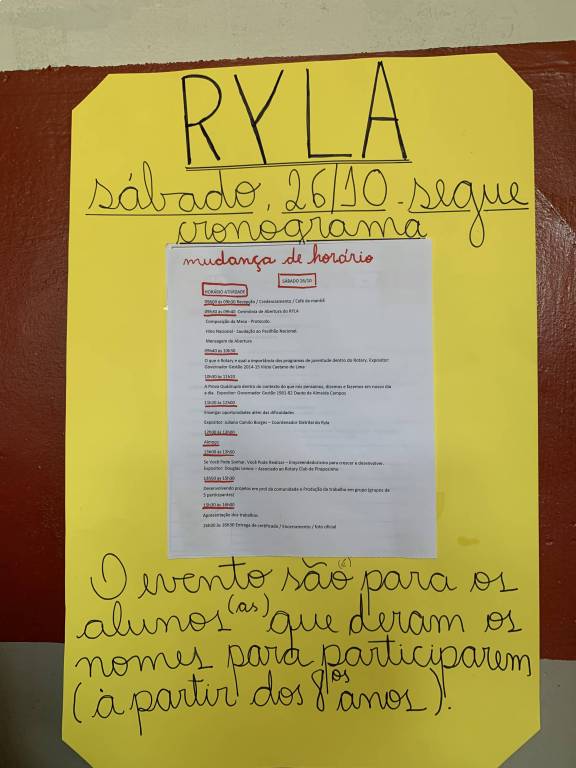 RYLA
sábado, 26/10 - segue
cronograma
mudança de horário
SÁBADO 26/10
HORÁRIO ATIVIDADE
09h00 às 09h30 Recepção / Credenciamento / Café da manhã
09h30 às 09h40 Cerimônia de Abertura do RYLA
Composição da Mesa - Protocolo.
Hino Nacional - Saudação ao Pavilhão Nacional.
Mensagem de Abertura
09h40 às 10h30
O que é Rotary e qual a importância dos programas de juventude dentro do Rotary. Expositor:
Governador Gestão 2014-15 Vitório Caetano de Lima
10h30 às 11h20
A Prova Quádrupla dentro do contexto do que nós pensamos, dizemos e fazemos em nosso dia
a dia. Expositor: Governador Gestão 1981-82 Dauto de Almeida Campos
11h20 às 12h00
Enxergar oportunidades além das dificuldades
Expositor: Juliano Camilo Borges – Coordenador Distrital do Ryla
12h00 às 13h00
Almoço
às
Se Você Pode Sonhar, Você Pode Realizar – Empreendedorismo para crescer e desenvolver.
Expositor: Douglas Lemos – Associado ao Rotary Club de Pirapozinho
às
Desenvolvendo projetos em prol da comunidade e Produção do trabalho em grupo (grupos de
5 participantes)
15h30 às 16h00
Apresentação dos trabalhos
16h00 às 16h30 Entrega de certificado / Encerramento / foto oficial
O evento são para os
alunos (as) que deram os
nomes para participarem
(à partir dos 8ºs anos).